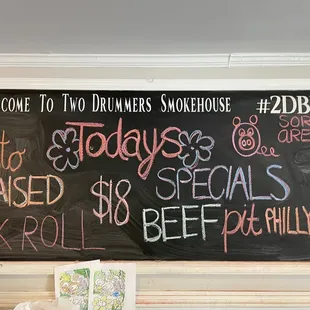 COME TO TWO DRUMMERS SMOKEHOUSE #2DB
Todays
SOR
ARE
to
AISED
$18
SPECIALS
K ROLL
BEEF pit PHILLY